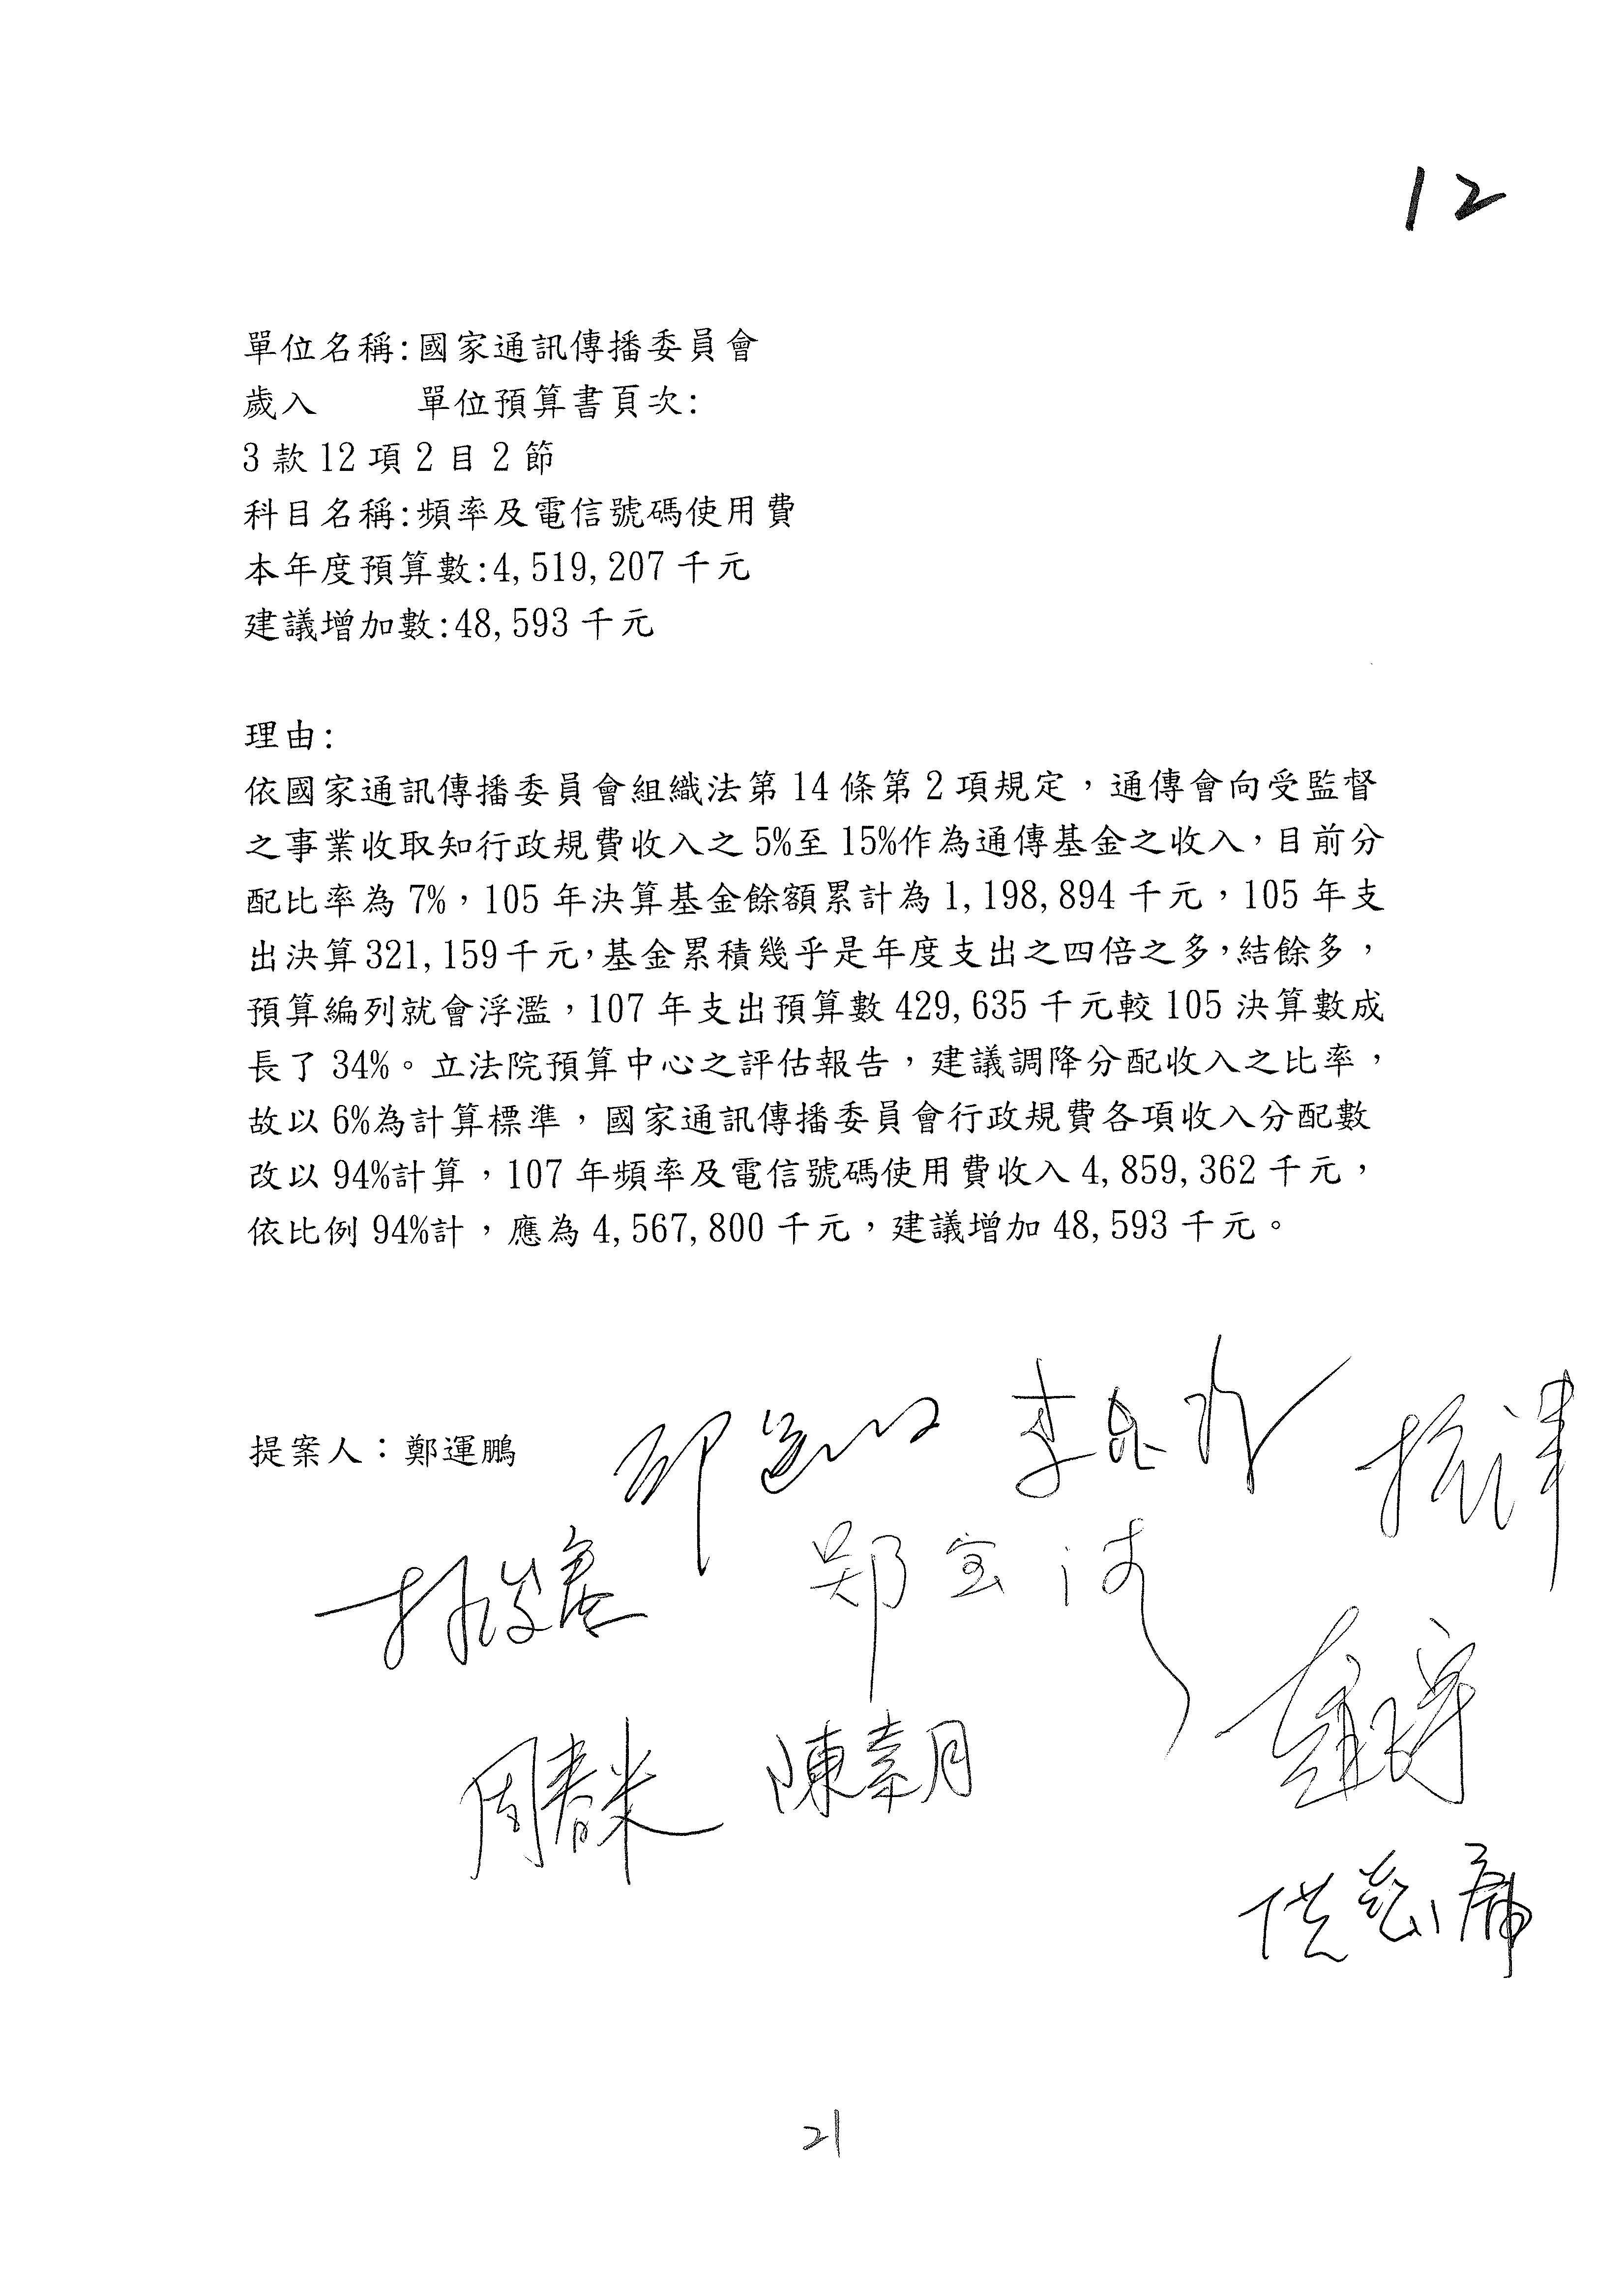 12
單位名稱:國家通訊傳播委員會
歲入 單位預算書頁次:
3款12項2目2節
科目名稱:頻率及電信號碼使用費
本年度預算數:4,519,207千元
建議增加數:48,593千元
理由:
依國家通訊傳播委員會組織法第14條第2項規定，通傳會向受監督
之事業收取知行政規費收入之5%至15%作為通傳基金之收入，目前分
配比率為7%，105年決算基金餘額累計為1,198,894千元，105年支
出決算321,159千元，基金累積幾乎是年度支出之四倍之多，結餘多，
預算編列就會浮濫，107年支出預算數429,635千元較105決算數成
長了34%。立法院預算中心之評估報告，建議調降分配收入之比率，
故以6%為計算標準，國家通訊傳播委員會行政規費各項收入分配數
改以94%計算，107年頻率及電信號碼使用費收入4,859,362千元，
依比例94%計，應為4,567,800千元，建議增加48,593千元。
提案人：鄭運鵬
鄭宝清
周春米 陳素月
21